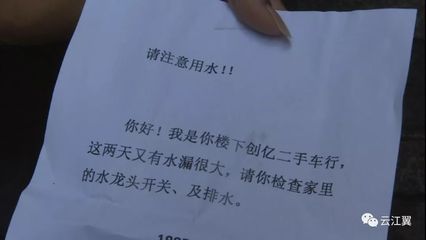 请注意用水!!
你好!我是你楼下创亿二手车行,
这两天又有水漏很大,请你检查家里
的水龙头开关、及排水。
云江翼